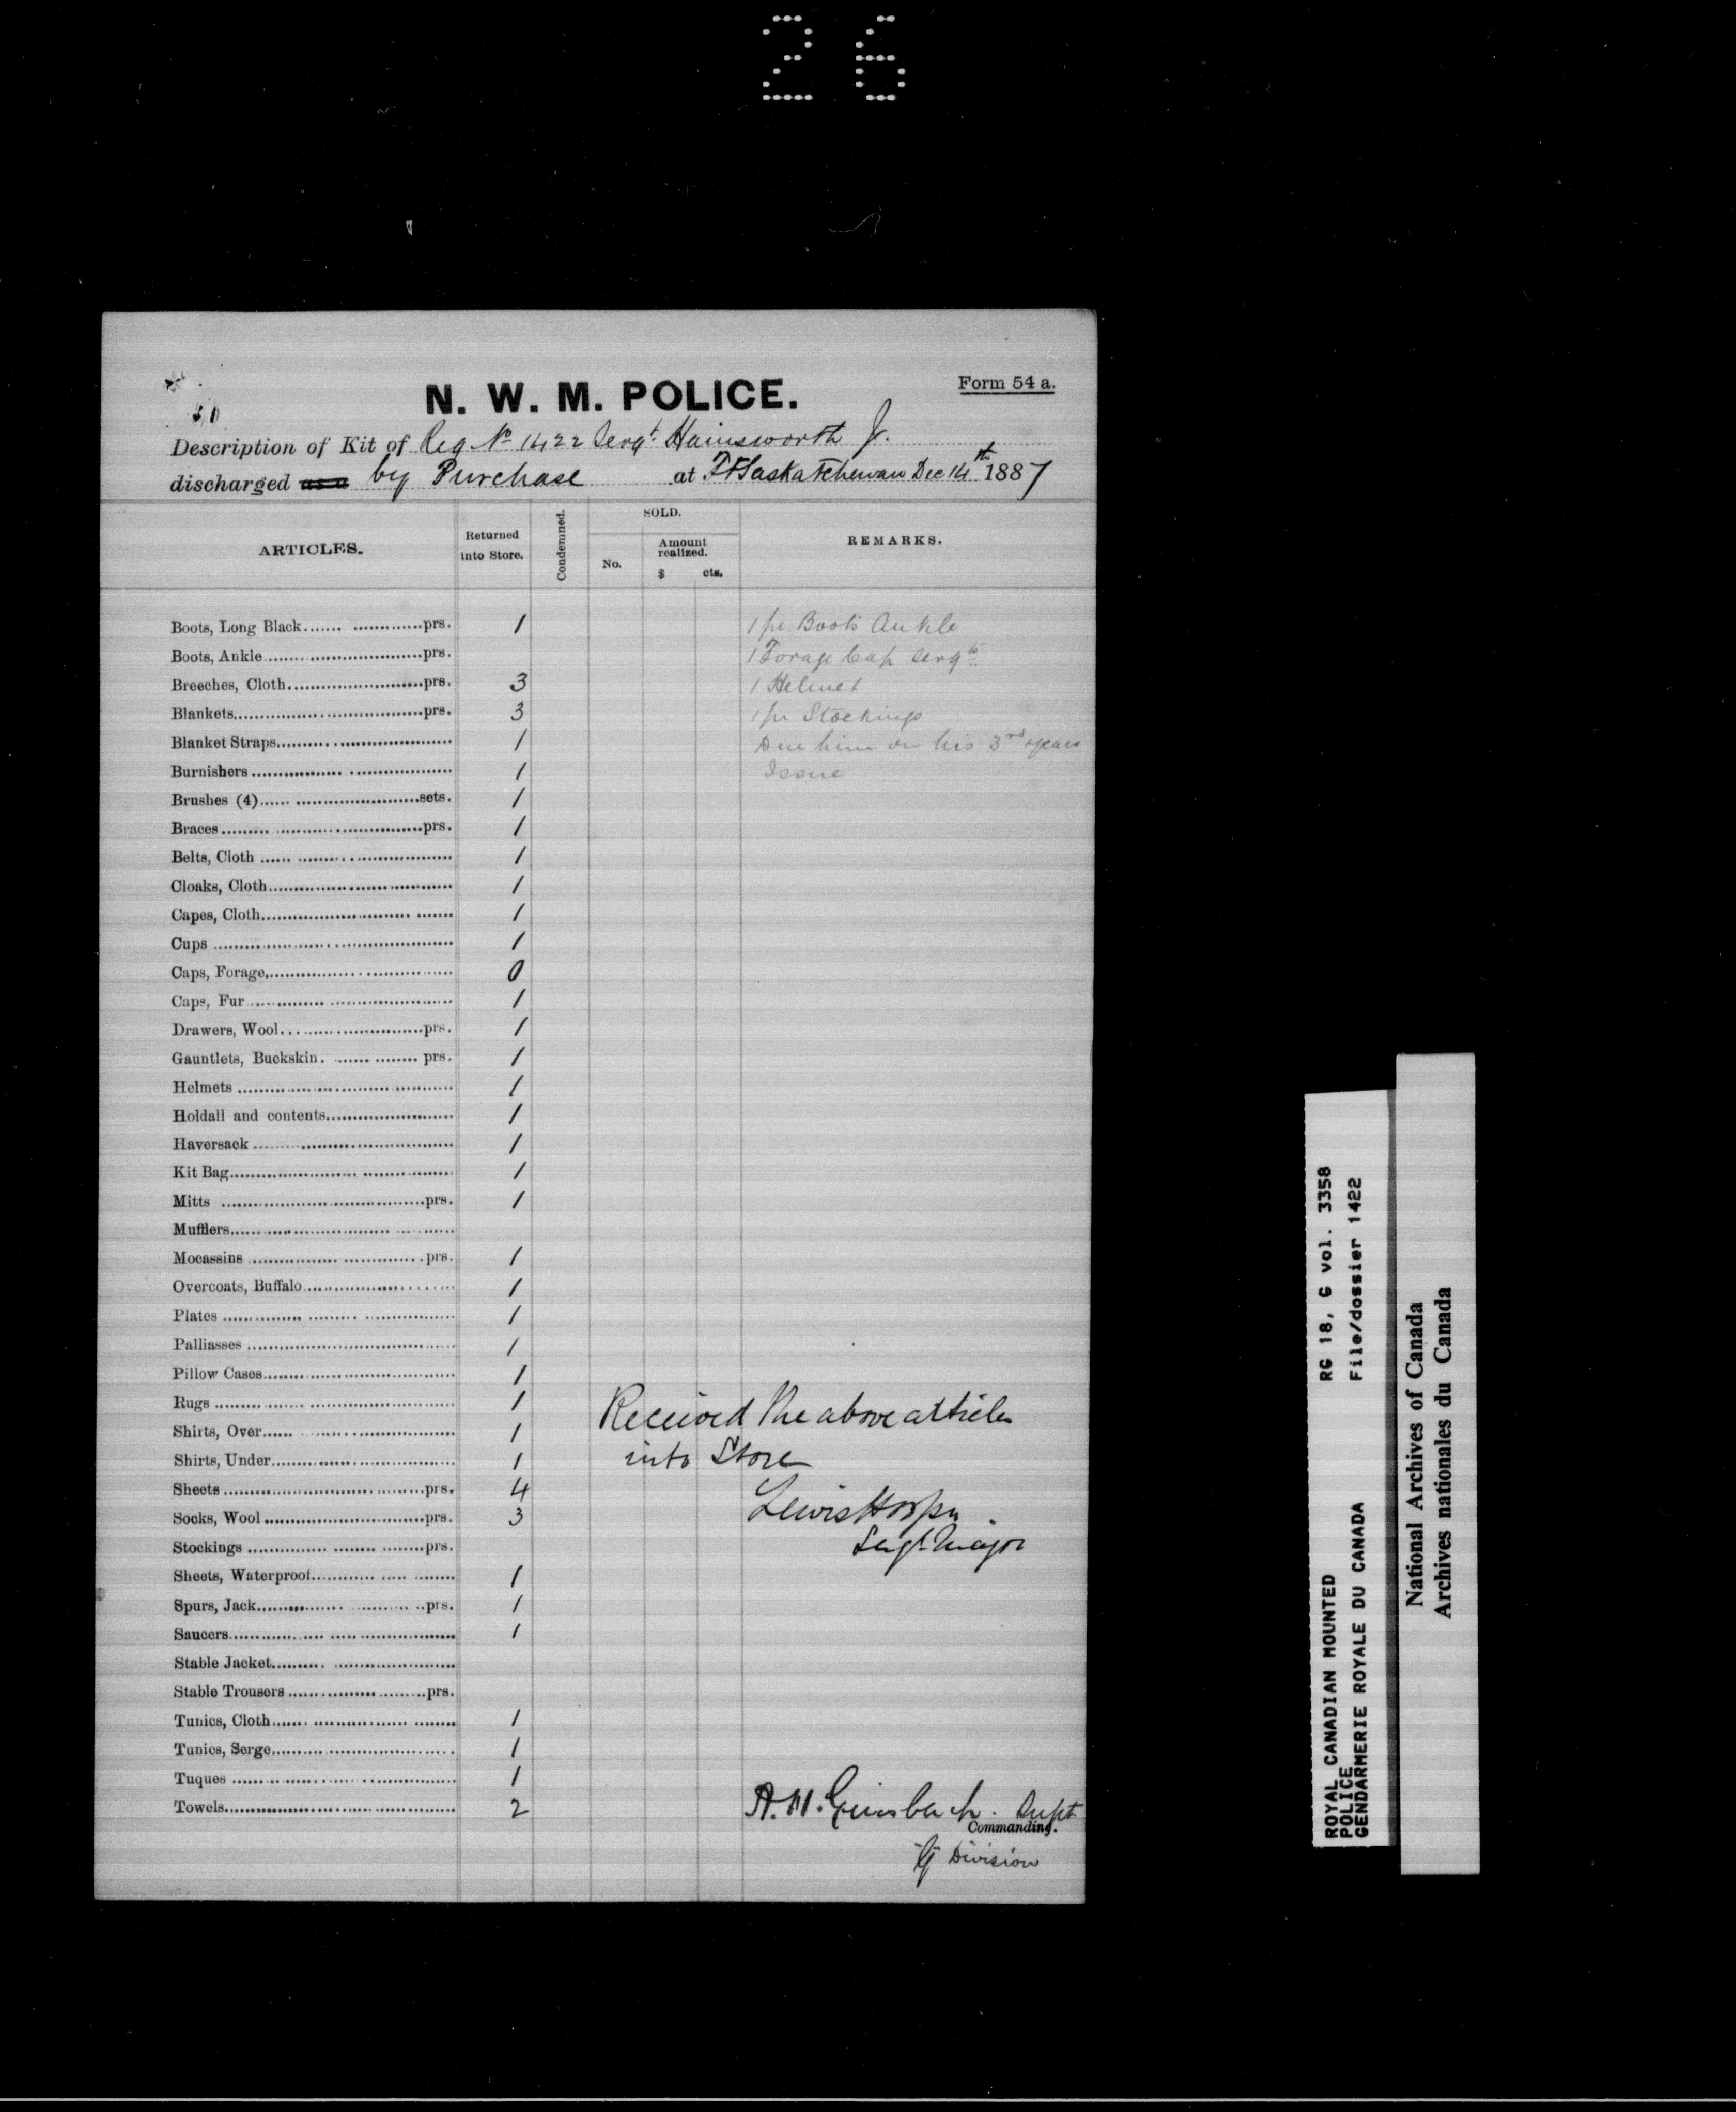 26
N. W. M. POLICE.
Form 54 a.
Description of Kit of Reg No 1422 Sergt. Hainsworth J.
discharged as a by Purchase at Ft Saskatchewan Dec 14th 1887
ARTICLES.
Returned into Store.
Condemned.
SOLD.
No.
Amount realized.
$ cts.
REMARKS.
Boots, Long Black prs. 1 1 pr Boots Ankle
Boots, Ankle prs. 1 Forage Cap Sergts
Breeches, Cloth prs. 3 1 Helmet
Blankets prs. 3 1 pr Stockings
Blanket Straps 1 Due him on his 3rd years
Burnishers 1 Issue
Brushes (4) sets. 1
Braces prs. 1
Belts, Cloth 1
Cloaks, Cloth 1
Capes, Cloth 1
Cups 1
Caps, Forage 0
Caps, Fur 1
Drawers, Wool prs. 1
Gauntlets, Buckskin prs. 1
Helmets 1
Holdall and contents 1
Haversack 1
Kit Bag 1
Mitts prs. 1
Mufflers
Mocassins prs. 1
Overcoats, Buffalo 1
Plates 1
Palliasses 1
Pillow Cases 1
Rugs 1 Received the above articles
Shirts, Over 1
Shirts, Under 1 into Store
Sheets prs. 4
Socks, Wool prs. 3 Lewis Hooper
Stockings prs. Sergt Major
Sheets, Waterproof 1
Spurs, Jack prs. 1
Saucers 1
Stable Jacket
Stable Trousers prs.
Tunics, Cloth 1
Tunics, Serge 1
Tuques 1
Towels 2 A. H. Griesbach. Supt
Commanding.
G Division
ROYAL CANADIAN MOUNTED RG 18, G vol. 3358
POLICE
GENDARMERIE ROYALE DU CANADA File/dossier 1422
National Archives of Canada
Archives nationales du Canada